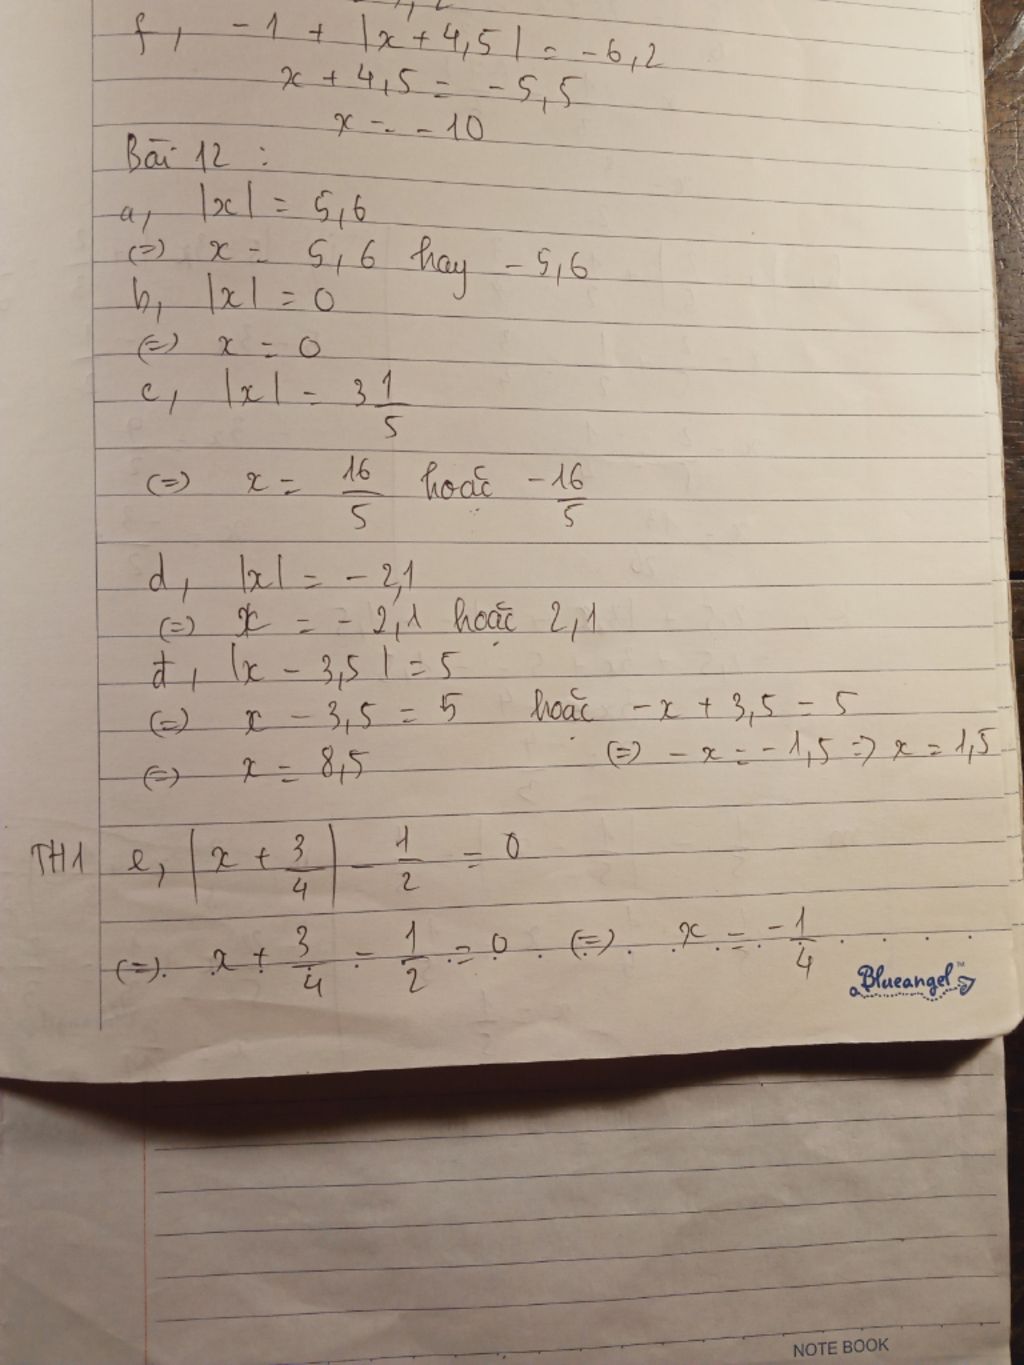 f, -1 + |x + 4,5| = -6,2
x + 4,5 = -5,5
x = -10
Bài 12 :
a, |x| = 5,6
(=) x = 5,6 hay -5,6
b, |x| = 0
(=) x = 0
c, |x| = 3 1/5
(=) x = 16/5 hoặc -16/5
d, |x| = -2,1
(=) x = -2,1 hoặc 2,1
đ, |x - 3,5| = 5
(=) x - 3,5 = 5 hoặc -x + 3,5 = 5
(=) x = 8,5 (=) -x = -1,5 => x = 1,5
TH1 e, |x + 3/4| - 1/2 = 0
(=) x + 3/4 - 1/2 = 0 (=) x = -1/4
Blueangel™
NOTE BOOK